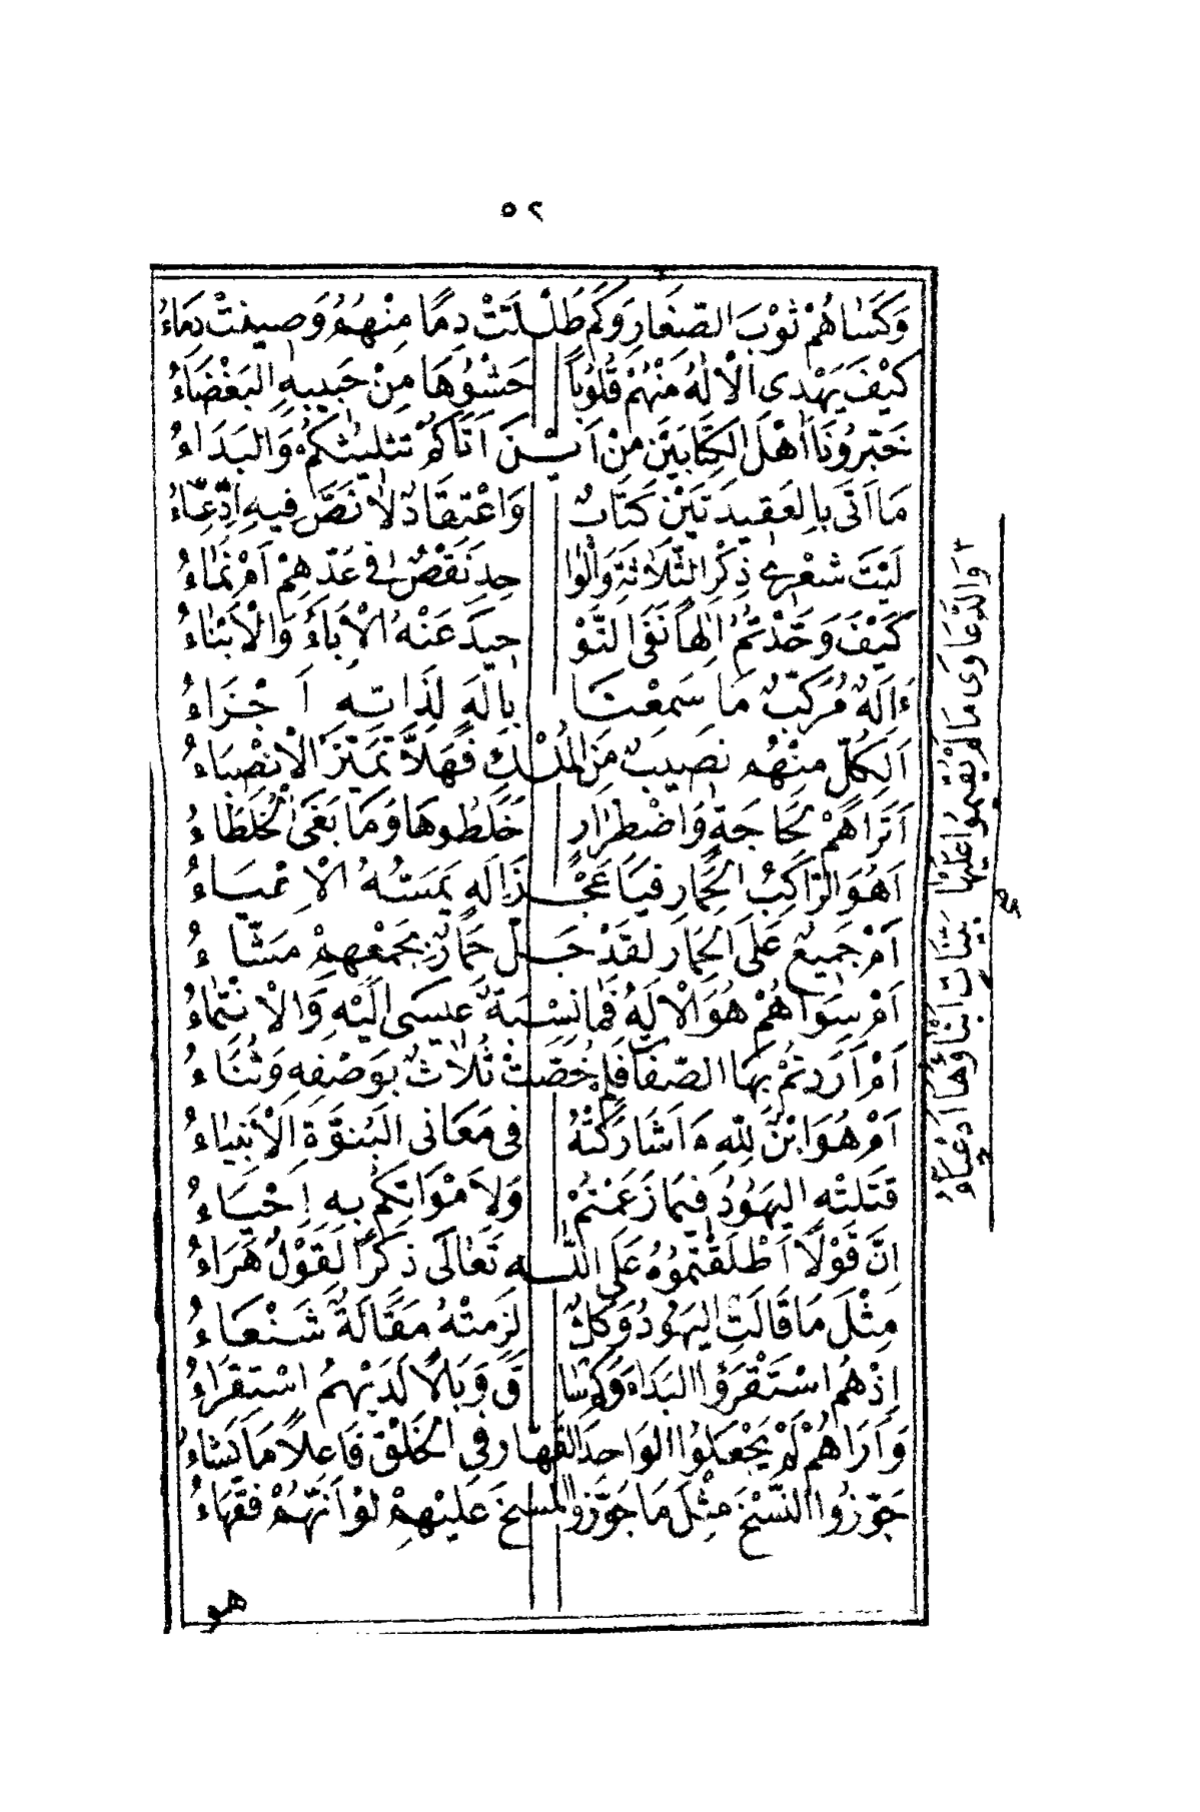 ٥٢
وَكَسَاهُمْ ثَوْبَ الصَّغَارِ وَكَم طُلَّتْ دِمًا مِنْهُمُ وَصِينَتْ دِمَاءُ
كَيْفَ يَهْدِى الْاِلٰهُ مِنْهُمْ قُلُوبًا حَشْوُهَا مِنْ حَبِيبِهِ الْبَغْضَاءُ
خَبِّرُونَا اَهْلَ الْكِتَابَيْنِ مِنْ اَيْنَ اَتَاكُمْ تَثْلِيثُكُمْ وَالْبَدَاءُ
مَا اَتَى بِالْعَقِيدَتَيْنِ كِتَابٌ وَاعْتِقَادٌ لَا نَصَّ فِيهِ اِدِّعَاءُ
لَيْتَ شِعْرِى ذِكْرُ الثَّلَاثَةِ وَالْوَا حِدِ نَقْصٌ فِى عَدِّهِمْ اَمْ نَمَاءُ
كَيْفَ وَحَّدْتُمُ اِلٰهًا نَفَى التَّوْ حِيدَ عَنْهُ الْاٰبَاءُ وَالْاَبْنَاءُ
ءَاِلٰهٌ مُرَكَّبٌ مَا سَمِعْنَا بِاِلٰهٍ لِذَاتِهِ اَجْزَاءُ
اَلِكُلٍّ مِنْهُم نَصِيبٌ مِنَ الْمُلْكِ فَهَلَّا تَمَيَّزَ الْاَنْصِبَاءُ
اَتَرَاهُمْ لِحَاجَةٍ وَاضْطِرَارٍ خَلَطُوهَا وَمَا بَغَى الْخُلَطَاءُ
اَهُوَ الرَّاكِبُ الْحِمَارِ فَيَا عَجْزَ اِلٰهٍ يَمَسُّهُ الْاِعْيَاءُ
اَمْ جَمِيعٌ عَلَى الْحِمَارِ لَقَدْ جَلَّ حِمَارٌ بِجَمْعِهِمْ مَشَّاءُ
اَمْ سِوَاهُمْ هُوَ الْاِلٰهُ فَمَا نِسْبَةُ عِيسَى اِلَيْهِ وَالْاِنْتِمَاءُ
اَمْ اَرَدْتُمْ بِهَا الصِّفَاتِ فَلِمْ خُصَّتْ ثُلَاثٌ بِوَصْفِهِ وَثُنَاءُ
اَمْ هُوَ ابْنٌ لِلّٰهِ مَا شَارَكَتْهُ فِى مَعَانِى الْبُنُوَّةِ الْاَنْبِيَاءُ
قَتَلَتْهِ الْيَهُودُ فِيمَا زَعَمْتُمْ وَلِاَمْوَاتِكُم بِهِ اِحْيَاءُ
اِنَّ قَوْلًا اَطْلَقْتُمُوهُ عَلَى اللّٰهِ تَعَالَى ذِكْرًا لَقَوْلٌ هُرَاءُ
مِثْلَ مَا قَالَتِ الْيَهُودُ وَكُلٌّ لَزِمَتْهُ مَقَالَةٌ شَنْعَاءُ
اِذْ هُمُ اسْتَقْرَؤُا الْبَدَاءَ وَكَم سَا قَ وَبَالًا لَدَيْهِمُ اسْتِقْرَاءُ
وَاَرَاهُمْ لَمْ يَجْعَلُوا الْوَاحِدَ الْقَهَّارَ فِى الْخَلْقِ فَاعِلًا مَا يَشَاءُ
جَوَّزُوا النَّسْخَ مِثْلَ مَا جُوِّزَ الْمَسْخُ عَلَيْهِمْ لَوْ اَنَّهُمْ فُقَهَاءُ
هو
٣ وَالدَّعَاوَى مَا لَمْ تُقِيمُوا عَلَيْهَا بَيِّنَاتٍ اَبْنَاؤُهَا اَدْعِيَاءُ
صح